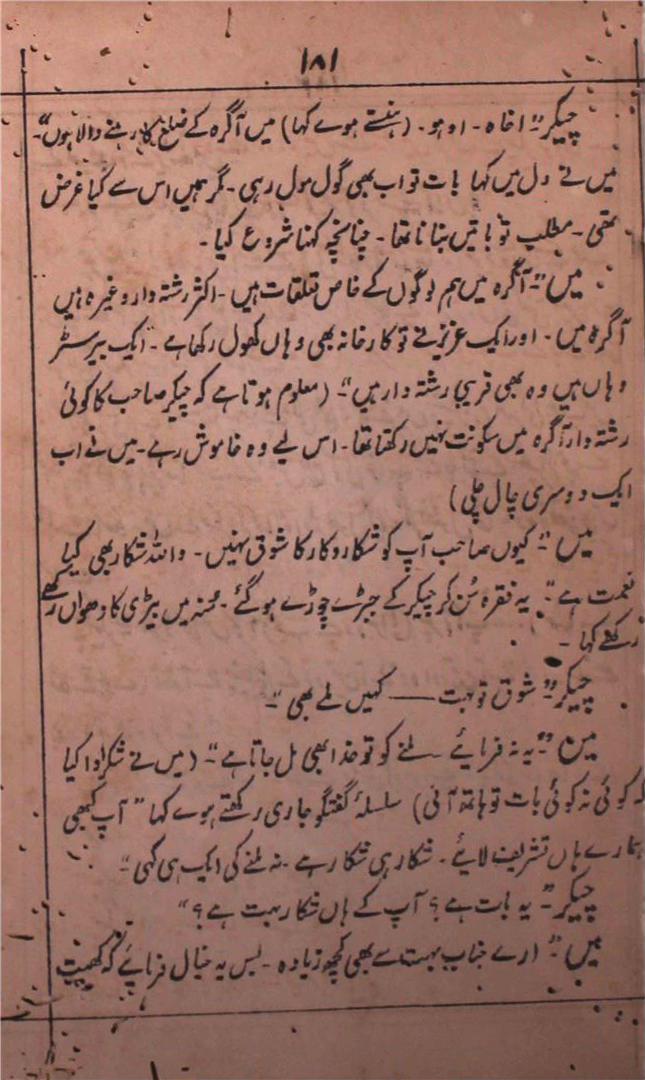 ۱۸۱
چیکر "اخاہ۔ اوہو۔ (ہنستے ہوے کہا) میں آگرہ کے ضلع کا رہنے والا ہوں"۔
میں نے دل میں کہا بات تو اب بھی گول مول رہی۔ مگر ہمیں اس سے کیا غرض
تھی۔ مطلب تو باتیں بنانا تھا۔ چنانچہ کہنا شروع کیا۔
میں "آگرہ میں ہم لوگوں کے خاص تعلقات ہیں۔ اکثر رشتہ دار وغیرہ ہیں
آگرہ میں۔ اور ایک عزیز نے تو کارخانہ بھی وہاں کھول رکھا ہے۔ ایک بیرسٹر
وہاں ہیں وہ بھی قریبی رشتہ دار ہیں"۔ (معلوم ہوتا ہے کہ چیکر صاحب کا کوئی
رشتہ دار آگرہ میں سکونت نہیں رکھتا تھا۔ اس لیے وہ خاموش رہے۔ میں نے اب
ایک دوسری چال چلی)
میں "کیوں صاحب آپ کو شکار وکار کا شوق نہیں۔ واللہ شکار بھی کیا
نعمت ہے"۔ یہ فقرہ سُن کر چیکر کے جبڑے چوڑے ہو گئے۔ منہ میں بیڑی کا دھواں رکھے
رکھے کہا۔
چیکر "شوق تو بہت —— کہیں ملے بھی"۔
میں "یہ نہ فرمائیے ملنے کو تو خدا بھی مل جاتا ہے"۔ (میں نے شکر ادا کیا
کہ کوئی نہ کوئی بات تو ہاتھ آئی) سلسلۂ گفتگو جاری رکھتے ہوے کہا "آپ کبھی
ہمارے ہاں تشریف لائیے۔ شکار ہی شکار ہے۔ نہ ملنے کی ایک ہی کہی"۔
چیکر "یہ بات ہے؟ آپ کے ہاں شکار بہت ہے؟"
میں "ارے جناب بہت سے بھی کچھ زیادہ۔ بس یہ خیال فرمائیے کہ کھیت